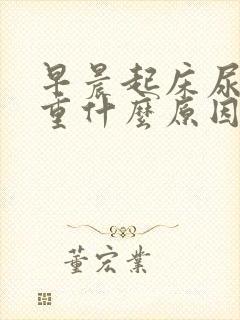 早晨起床尿
重什麼原因
董宏業